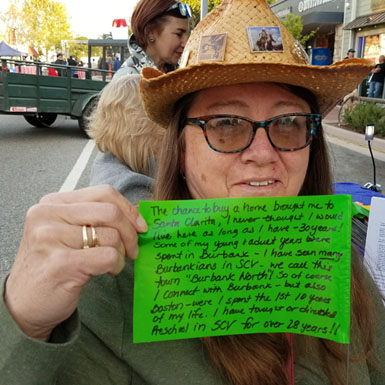 The chance to buy a home brought me to
Santa Clarita, I never thought I would
live here as long as I have - 30 years!
Some of my young & adult years were
spent in Burbank - I have seen many
Burbankians in SCV - we call this
town "Burbank North"! So of course
I connect with Burbank - but also
Boston - were I spent the 1st 10 years
of my life. I have taught or directed
Preschool in SCV for over 28 years!!